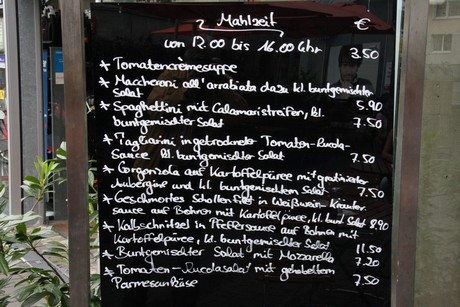 Mahlzeit €
von 12.00 bis 16.00 Uhr
* Tomatencrèmesuppe 3.50
* Maccheroni all'arrabiata dazu kl. buntgemischten
Salat 5.90
* Spaghettini mit Calamaristreifen, kl.
buntgemischter Salat 7.50
* Tagliarini in getrockneter Tomaten-Rucola-
Sauce kl. buntgemischter Salat 7.50
* Gorgonzola auf Kartoffelpüree mit gratinierter
Aubergine und kl. buntgemischtem Salat 7.50
* Geschmortes Schollenfilet in Weißwein-Kräuter
sauce auf Bohnen mit Kartoffelpüree, kl. bunt Salat 8.90
* Kalbschnitzel in Pfeffersauce auf Bohnen mit
Kartoffelpüree, kl. buntgemischter Salat 11.50
* Buntgemischter Salat mit Mozzarella 7.20
* Tomaten-Rucolasalat mit gehobeltem
Parmesankäse 7.50